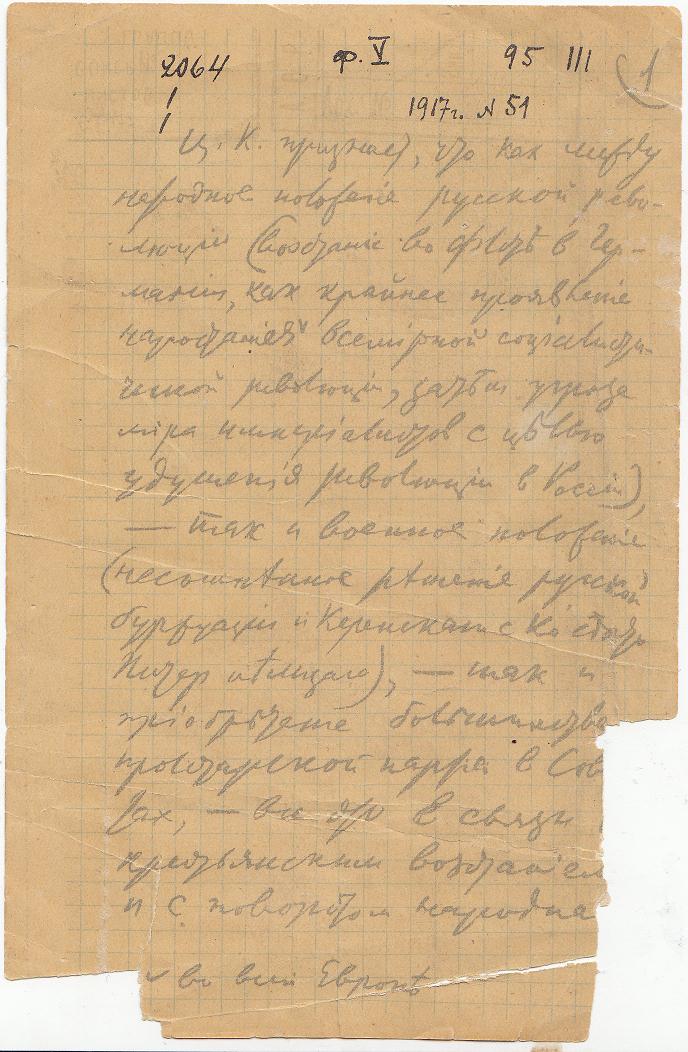 2064 ф. V 95 III 1
1917 г. N 51
Ц. К. признает, что как между
народное положение русской рево-
люции (возстание во флотѣ в Гер-
мании, как крайнее проявленіе
наростанія всемірной соціалисти-
ческой революціи, затѣм угроза
мира имперіалистов с цѣлью
удушенія революціи в Россіи),
— так и военное положеніе
(несомнѣнное рѣшеніе русской
буржуазіи и Керенскаго с Ко сдать
Питер нѣмцам), — так и
пріобрѣтеніе большинства
пролетарской партіей в Сов
тах, — все это в связи
крестьянским возстаніем
и с поворотом народна
во всей Европѣ